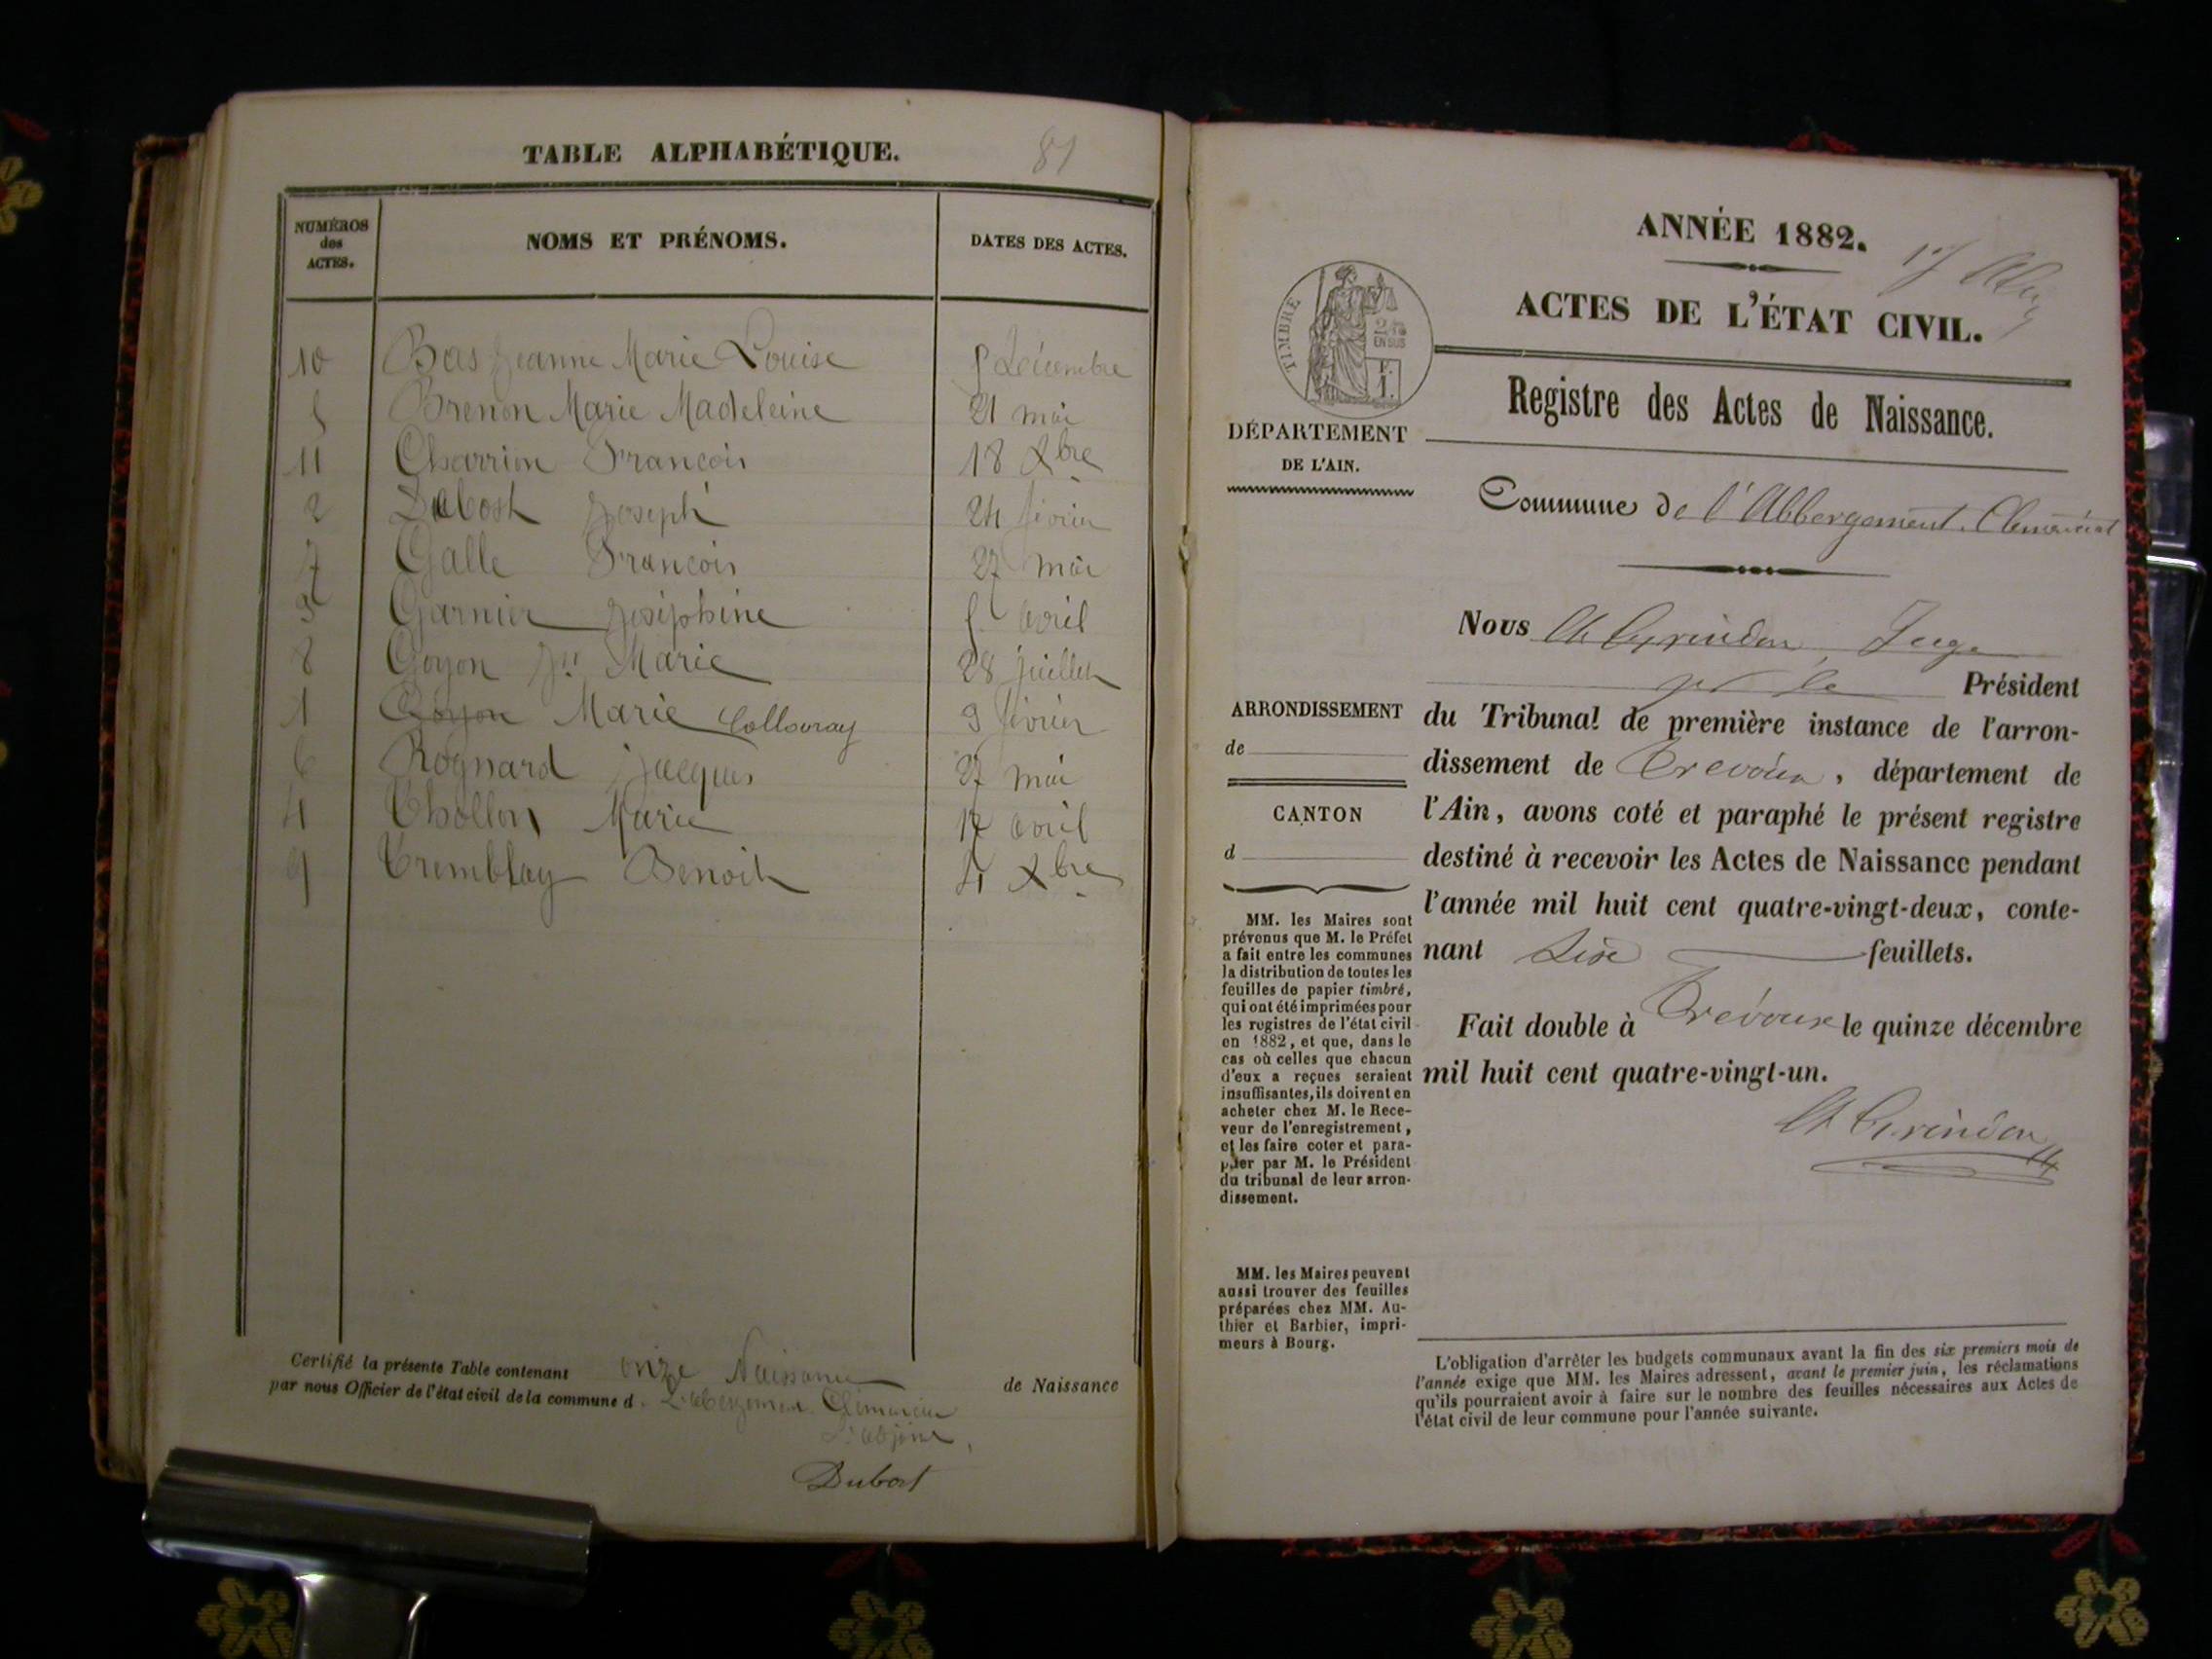 TABLE ALPHABÉTIQUE.
81
NUMÉROS
des
ACTES.
NOMS ET PRÉNOMS.
DATES DES ACTES.
10 Bas Jeanne Marie Louise 5 Décembre
5 Brenon Marie Madeleine 21 mai
11 Charrion François 18 Xbre
2 Dubost Joseph 24 février
7 Galle François 27 mai
3 Garnier Joséphine 5 avril
8 Goyon Marie 28 juillet
1 Goyon Marie Collovray 9 février
6 Rognard Jacques 27 mai
4 Chollon Marie 17 avril
9 Tremblay Benoit 4 Xbre
Certifié la présente Table contenant onze Naissances de Naissance
par nous Officier de l'état civil de la commune d L'abergement Clémenciat
L'adjoint,
Dubost
ANNÉE 1882.
ACTES DE L'ÉTAT CIVIL.
TIMBRE
EN SUS
Registre des Actes de Naissance.
DÉPARTEMENT
DE L'AIN.
Commune de l'Abbergement-Clémenciat
Nous Grindon, Juge
pr le Président
du Tribunal de première instance de l'arron-
dissement de Trévoux, département de
l'Ain, avons coté et paraphé le présent registre
destiné à recevoir les Actes de Naissance pendant
l'année mil huit cent quatre-vingt-deux, conte-
nant Six feuillets.
Fait double à Trévoux le quinze décembre
mil huit cent quatre-vingt-un.
Grindon
ARRONDISSEMENT
de
CANTON
d
MM. les Maires sont
prévenus que M. le Préfet
a fait entre les communes
la distribution de toutes les
feuilles de papier timbré,
qui ont été imprimées pour
les registres de l'état civil
en 1882, et que, dans le
cas où celles que chacun
d'eux a reçues seraient
insuffisantes, ils doivent en
acheter chez M. le Rece-
veur de l'enregistrement,
et les faire coter et para-
pher par M. le Président
du tribunal de leur arron-
dissement.
MM. les Maires peuvent
aussi trouver des feuilles
préparées chez MM. Au-
thier et Barbier, impri-
meurs à Bourg.
L'obligation d'arrêter les budgets communaux avant la fin des six premiers mois de
l'année exige que MM. les Maires adressent, avant le premier juin, les réclamations
qu'ils pourraient avoir à faire sur le nombre des feuilles nécessaires aux Actes de
l'état civil de leur commune pour l'année suivante.